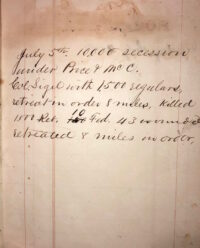 July 5th, 10,000 secession
under Price & McC.
Col. Sigel with 1,500 regulars,
retreat in order 8 miles, killed
1500 Reb. 10 Fed. 43 wound
retreated 8 miles in order,